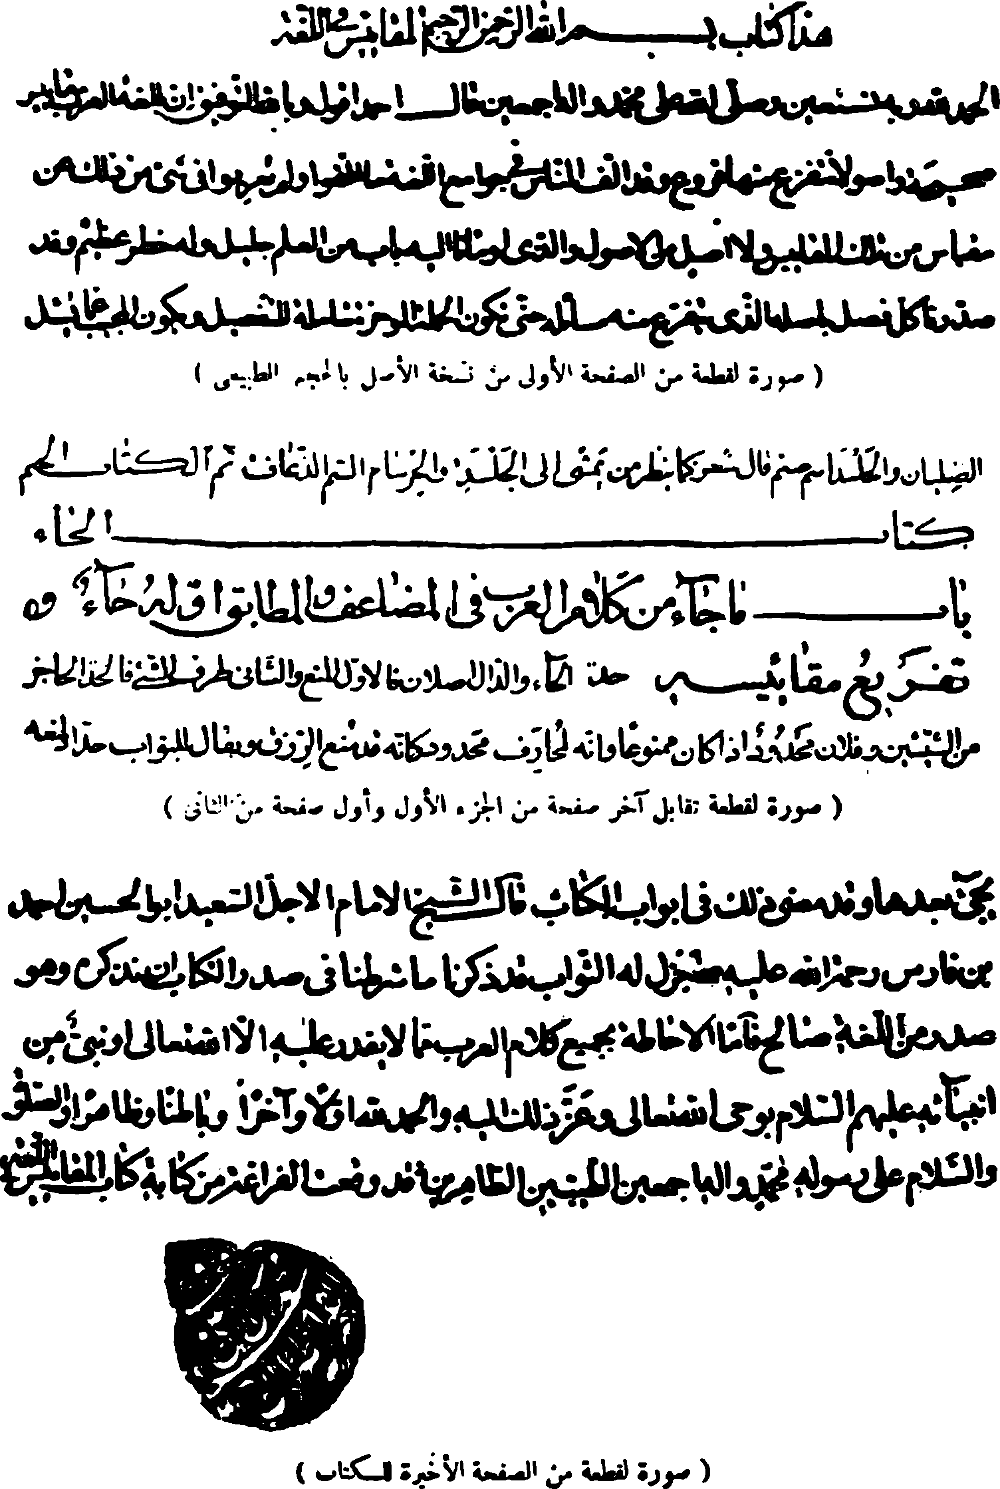 هذا كتاب بسم الله الرحمن الرحيم المقاييس في اللغة
الحمد لله وبه نستعين وصلى الله على محمد وآله اجمعين قال احمد اقول وبالله التوفيق ان للغة العرب مقاييس
صحيحة واصولا تتفرع منها فروع وقد الف الناس في جوامع اللغة ما الفوا ولم يعربوا في شئ من ذلك عن
مقياس من تلك المقاييس ولا اصل من الاصول والذي اومأنا اليه باب من العلم جليل وله خطر عظيم وقد
صدرنا كل فصل باصله الذي يتفرع منه مسائله حتى تكون الجملة الموجزة شاملة للتفصيل ويكون المجيب عما يسئل
( صورة لقطعة من الصفحة الأولى من نسخة الأصل بالحجم الطبيعى )
الصلبان والجلسد اسم صنم قال شعر كما بيقر من يمشي الى الجلسد والجرسام السم الذعاف تم آلكتاب الجيم
كتاب الخاء
باب ما جآء من كلام العرب في المضاعف والمطابق اوله حآء و
تفريع مقاييسه حد الحآء والدال اصلان فالاول المنع والثاني طرف الشئ فالحد الحاجز
من الشيئين وفلان محدود اذا كان ممنوعا وانه لمحارف محدود كانه قد منع الرزق ويقال للبواب حداد لمنعه
( صورة لقطعة تقابل آخر صفحة من الجزء الأول وأول صفحة من الثانى )
يجئ بعدها وقد مضى ذلك في ابواب الكتاب قال الشيخ الامام الاجل السعيد ابو الحسين احمد
بن فارس رحمة الله عليه له الثواب قد ذكرنا ما شرطنا في صدر الكتاب ان نذكره وهو
صدر من اللغة صالح فأما الاحاطة بجميع كلام العرب فما لا يقدر عليه الا الله تعالى او نبي من
انبيآئه عليهم السلام بوحى الله تعالى وعز ذلك اليه والحمد لله اولا وآخرا وباطنا وظاهرا والصلوة
والسلام على رسوله محمد وآله اجمعين الطيبين الطاهرين قد وقعت الفراغة من كتابة كتاب المقاييس اللغة
( صورة لقطعة من الصفحة الأخيرة للكتاب )